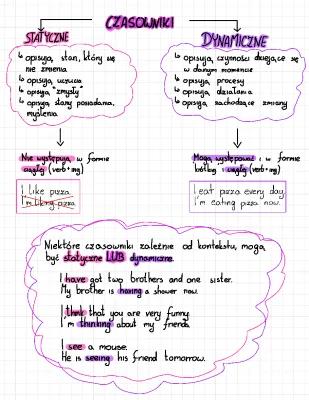 CZASOWNIKI
STATYCZNE
↳ opisują stan, który się
nie zmienia
↳ opisują uczucia
↳ opisują "zmysły"
↳ opisują stany posiadania,
myślenia
DYNAMICZNE
↳ opisują czynności dziejące się
w danym momencie
↳ opisują procesy
↳ opisują działania
↳ opisują zachodzące zmiany
Nie występują w formie
ciągłej (verb+ing)
I like pizza.
I'm liking pizza.
Mogą występować i w formie
krótkiej i ciągłej (verb+ing)
I eat pizza every day.
I'm eating pizza now.
Niektóre czasowniki zależnie od kontekstu, mogą
być statyczne LUB dynamiczne.
I have got two brothers and one sister.
My brother is having a shower now.
I think that you are very funny.
I'm thinking about my friends.
I see a mouse.
He is seeing his friend tomorrow.